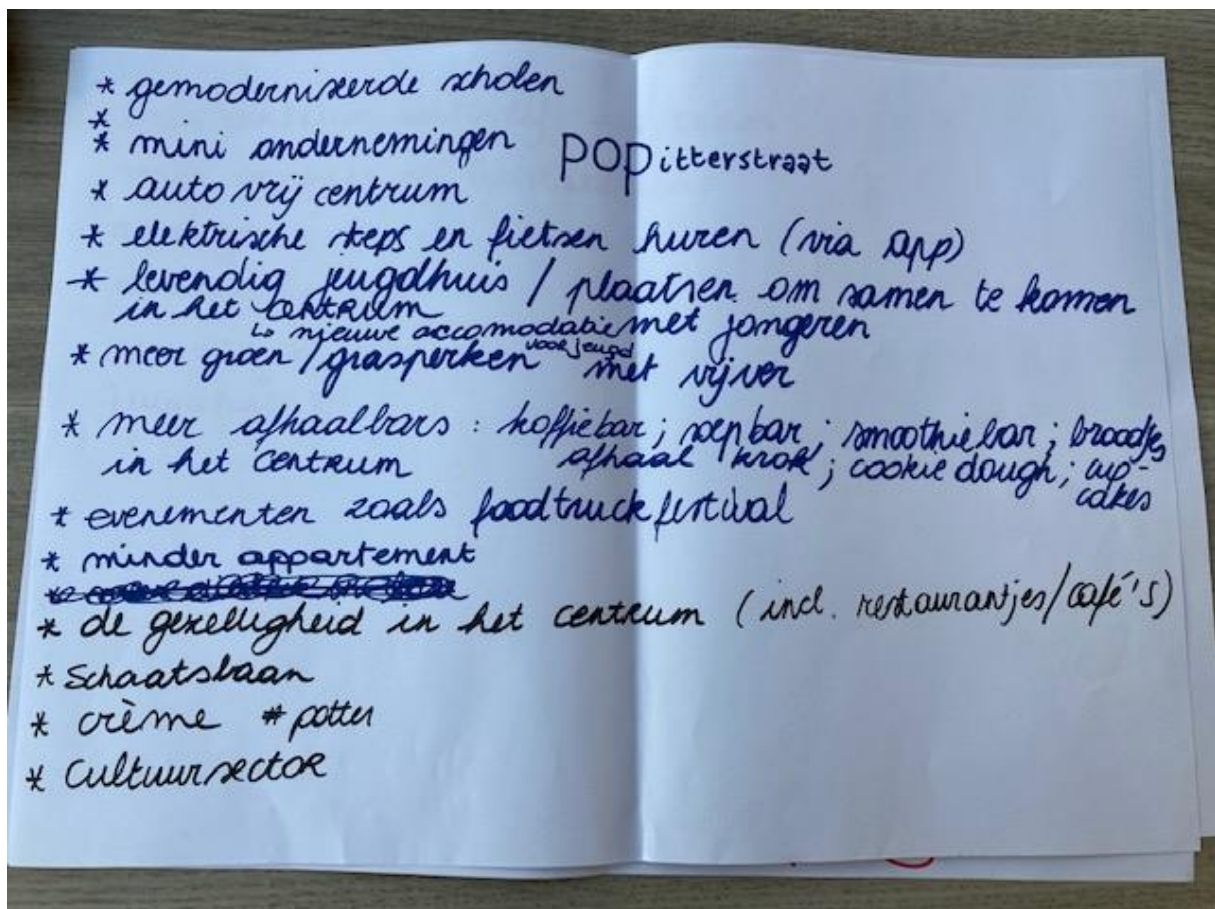 * gemoderniseerde scholen
*
* mini ondernemingen
POPitterstraat
* auto vrij centrum
* elektrische steps en fietsen huren (via app)
* levendig jeugdhuis / plaatsen om samen te komen
in het centrum met jongeren
↳ nieuwe accomodatie voor jeugd
* meer groen / grasperken met vijver
* meer afhaalbars : koffiebar ; soepbar ; smoothiebar ; broodjes
in het centrum afhaal krok ; cookie dough ; cup-
cakes
* evenementen zoals foodtruckfestival
* minder appartement
*
* de gezelligheid in het centrum (incl. restaurantjes/café's)
* Schaatsbaan
* crème # potter
* Cultuursector